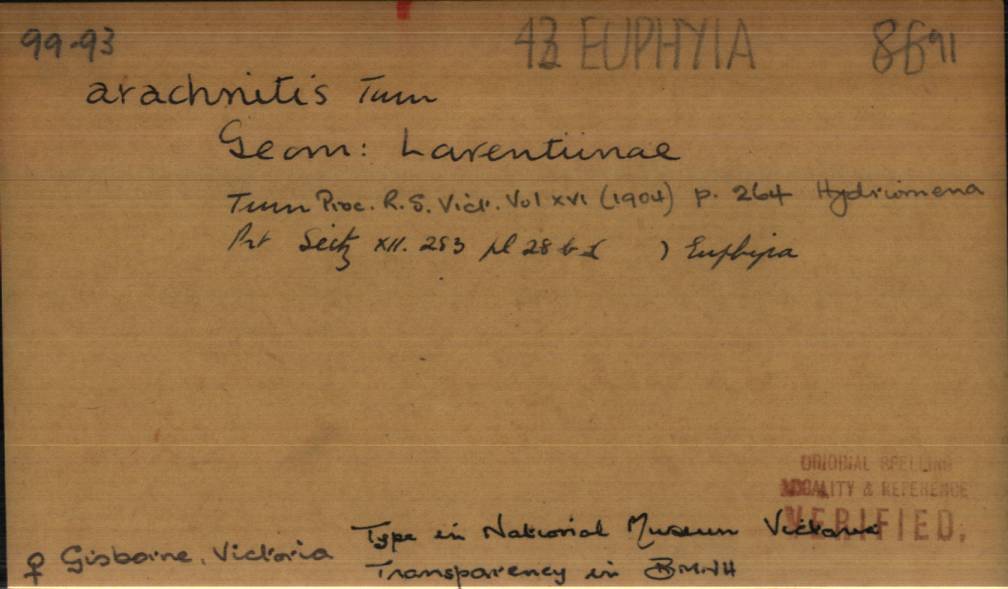 99.93 43 EUPHYIA 8691
arachnitis Turn
Geom: Larentiinae
Turn Proc. R. S. Vict. Vol XVI (1904) p. 264 Hydriomena
Prt Seitz XII. 253 pl 28 b ) Euphyia
ORIGINAL SPELLING
LOCALITY & REFERENCE
VERIFIED.
Type in National Museum Victoria
♀ Gisborne, Victoria
Transparency in BMNH